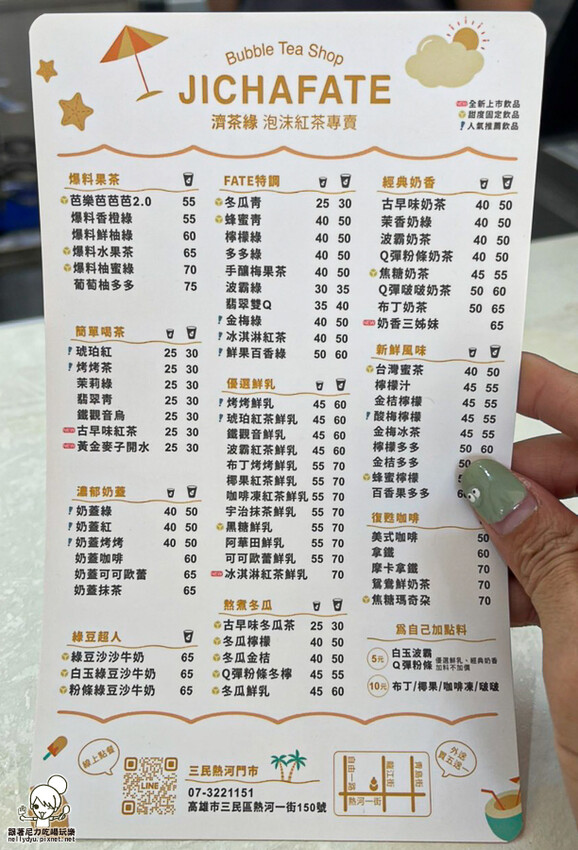 Bubble Tea Shop
JICHAFATE
濟茶綠 泡沫紅茶專賣
NEW 全新上市飲品
甜度固定飲品
人氣推薦飲品
爆料果茶
芭樂芭芭芭2.0 55
爆料香橙綠 55
爆料鮮柚綠 60
爆料水果茶 65
爆料柚蜜綠 70
葡萄柚多多 75
簡單喝茶
琥珀紅 25 30
烤烤茶 25 30
茉莉綠 25 30
翡翠青 25 30
鐵觀音烏 25 30
NEW 古早味紅茶 25 30
NEW 黃金麥子開水 25 30
濃郁奶蓋
奶蓋綠 40 50
奶蓋紅 40 50
奶蓋烤烤 40 50
奶蓋咖啡 60
奶蓋可可歐蕾 65
奶蓋抹茶 65
綠豆超人
綠豆沙沙牛奶 65
白玉綠豆沙牛奶 65
粉條綠豆沙牛奶 65
FATE特調
冬瓜青 25 30
蜂蜜青 40 50
檸檬綠 40 50
多多綠 40 50
手釀梅果茶 40 50
波霸綠 30 35
翡翠雙Q 35 40
金梅綠 40 50
冰淇淋紅茶 40 50
鮮果百香綠 50 60
優選鮮乳
烤烤鮮乳 45 60
琥珀紅茶鮮乳 45 60
鐵觀音鮮乳 45 60
波霸紅茶鮮乳 45 60
布丁烤烤鮮乳 55 70
椰果紅茶鮮乳 55 70
咖啡凍紅茶鮮乳 55 70
宇治抹茶鮮乳 55 70
黑糖鮮乳 55 70
阿華田鮮乳 55 70
可可歐蕾鮮乳 55 70
NEW 冰淇淋紅茶鮮乳 70
熬煮冬瓜
古早味冬瓜茶 25 30
冬瓜檸檬 40 50
冬瓜金桔 40 50
Q彈粉條冬檸 45 55
冬瓜鮮乳 45 60
經典奶香
古早味奶茶 40 50
茉香奶綠 40 50
波霸奶茶 40 50
Q彈粉條奶茶 40 50
焦糖奶茶 45 55
Q彈啵啵奶茶 50 60
布丁奶茶 50 65
NEW 奶香三姊妹 65
新鮮風味
台灣蜜茶 40 50
檸檬汁 45 55
金桔檸檬 45 55
酸梅檸檬 45 55
金梅冰茶 45 55
檸檬多多 50 60
金桔多多 50
蜂蜜檸檬
百香果多多
復甦咖啡
美式咖啡 50
拿鐵 60
摩卡拿鐵 70
鴛鴦鮮奶茶 70
焦糖瑪奇朵 70
為自己加點料
5元 白玉波霸
Q彈粉條
優選鮮乳、經典奶香
加料不加價
10元 布丁/椰果/咖啡凍/啵啵
線上點餐
LINE
三民熱河門市
07-3221151
高雄市三民區熱河一街150號
自由一路
龍江街
青島街
熱河一街
外送
買五送一
跟著尼力吃喝玩樂
nellydyu.pixnet.net